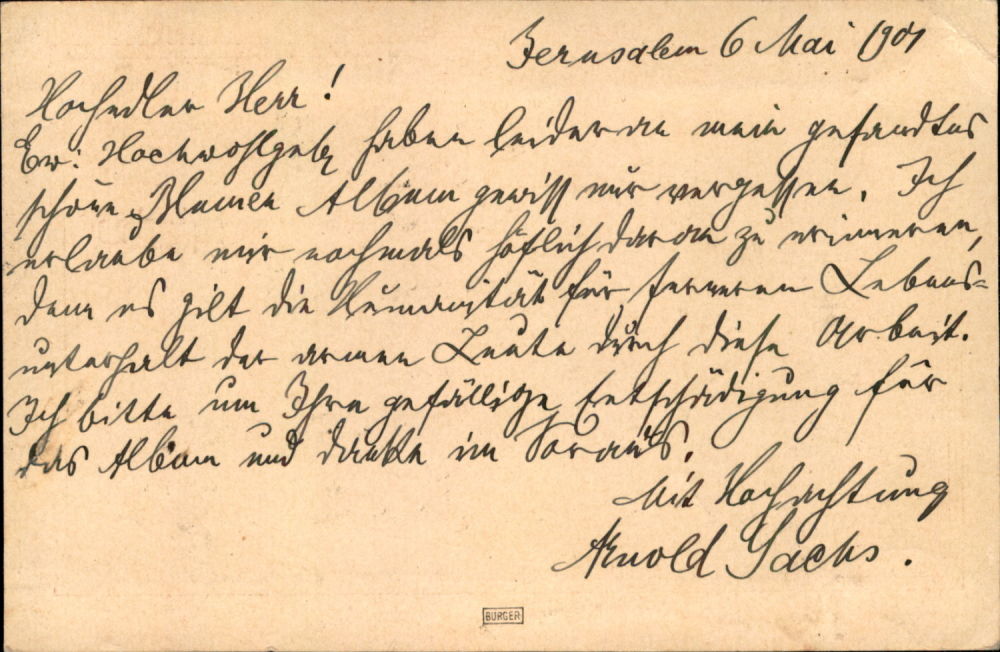 Jerusalem 6 Mai 1901
Hochedler Herr!
Ew. Hochwohlgeb. haben leider an mein gesandtes
schöne Blumen Album gewiss nur vergessen. Ich
erlaube mir nochmals höflich daran zu erinneren,
denn es gilt die Humanität für ferneren Lebens=
unterhalt der armen Leute durch diese Arbeit.
Ich bitte um Ihre gefällige Entschädigung für
das Album und danke im Voraus.
Mit Hochachtung
Arnold Sachs.
BÜRGER